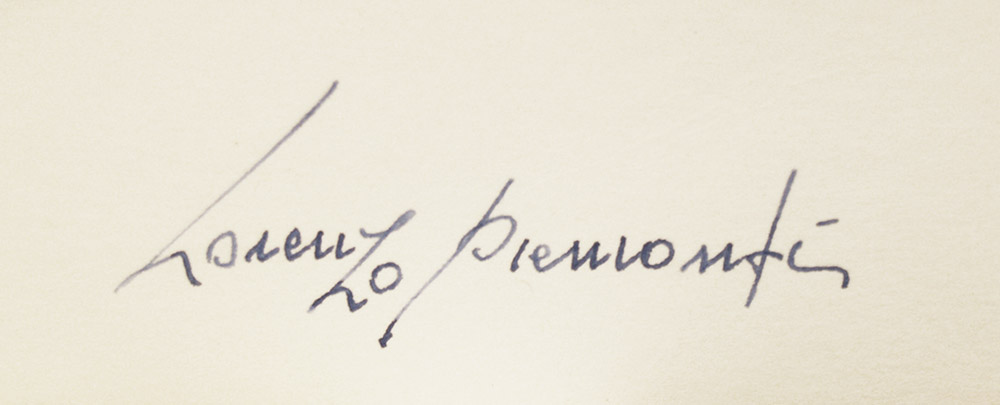 Lorenzo Piemonti